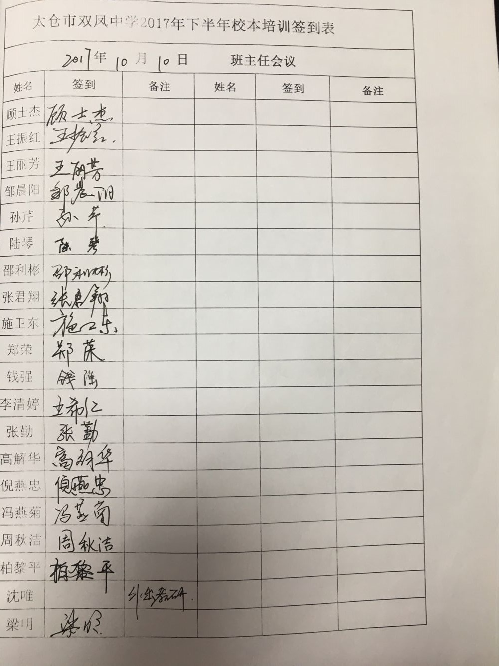 太仓市双凤中学2017年下半年校本培训签到表
2017年 10月 10日 班主任会议
姓名 签到 备注 姓名 签到 备注
顾士杰 顾士杰
王振红 王振红
王丽芳 王丽芳
邹晨阳 邹晨阳
孙芹 孙芹
陆琴 陆琴
邵利彬 邵利彬
张君翔 张君翔
施卫东 施卫东
郑荣 郑荣
钱强 钱强
李清婷 王希仁
张勤 张勤
高解华 高解华
倪燕忠 倪燕忠
冯燕菊 冯燕菊
周秋洁 周秋洁
柏黎平 柏黎平
沈唯 外出教研
梁明 梁明